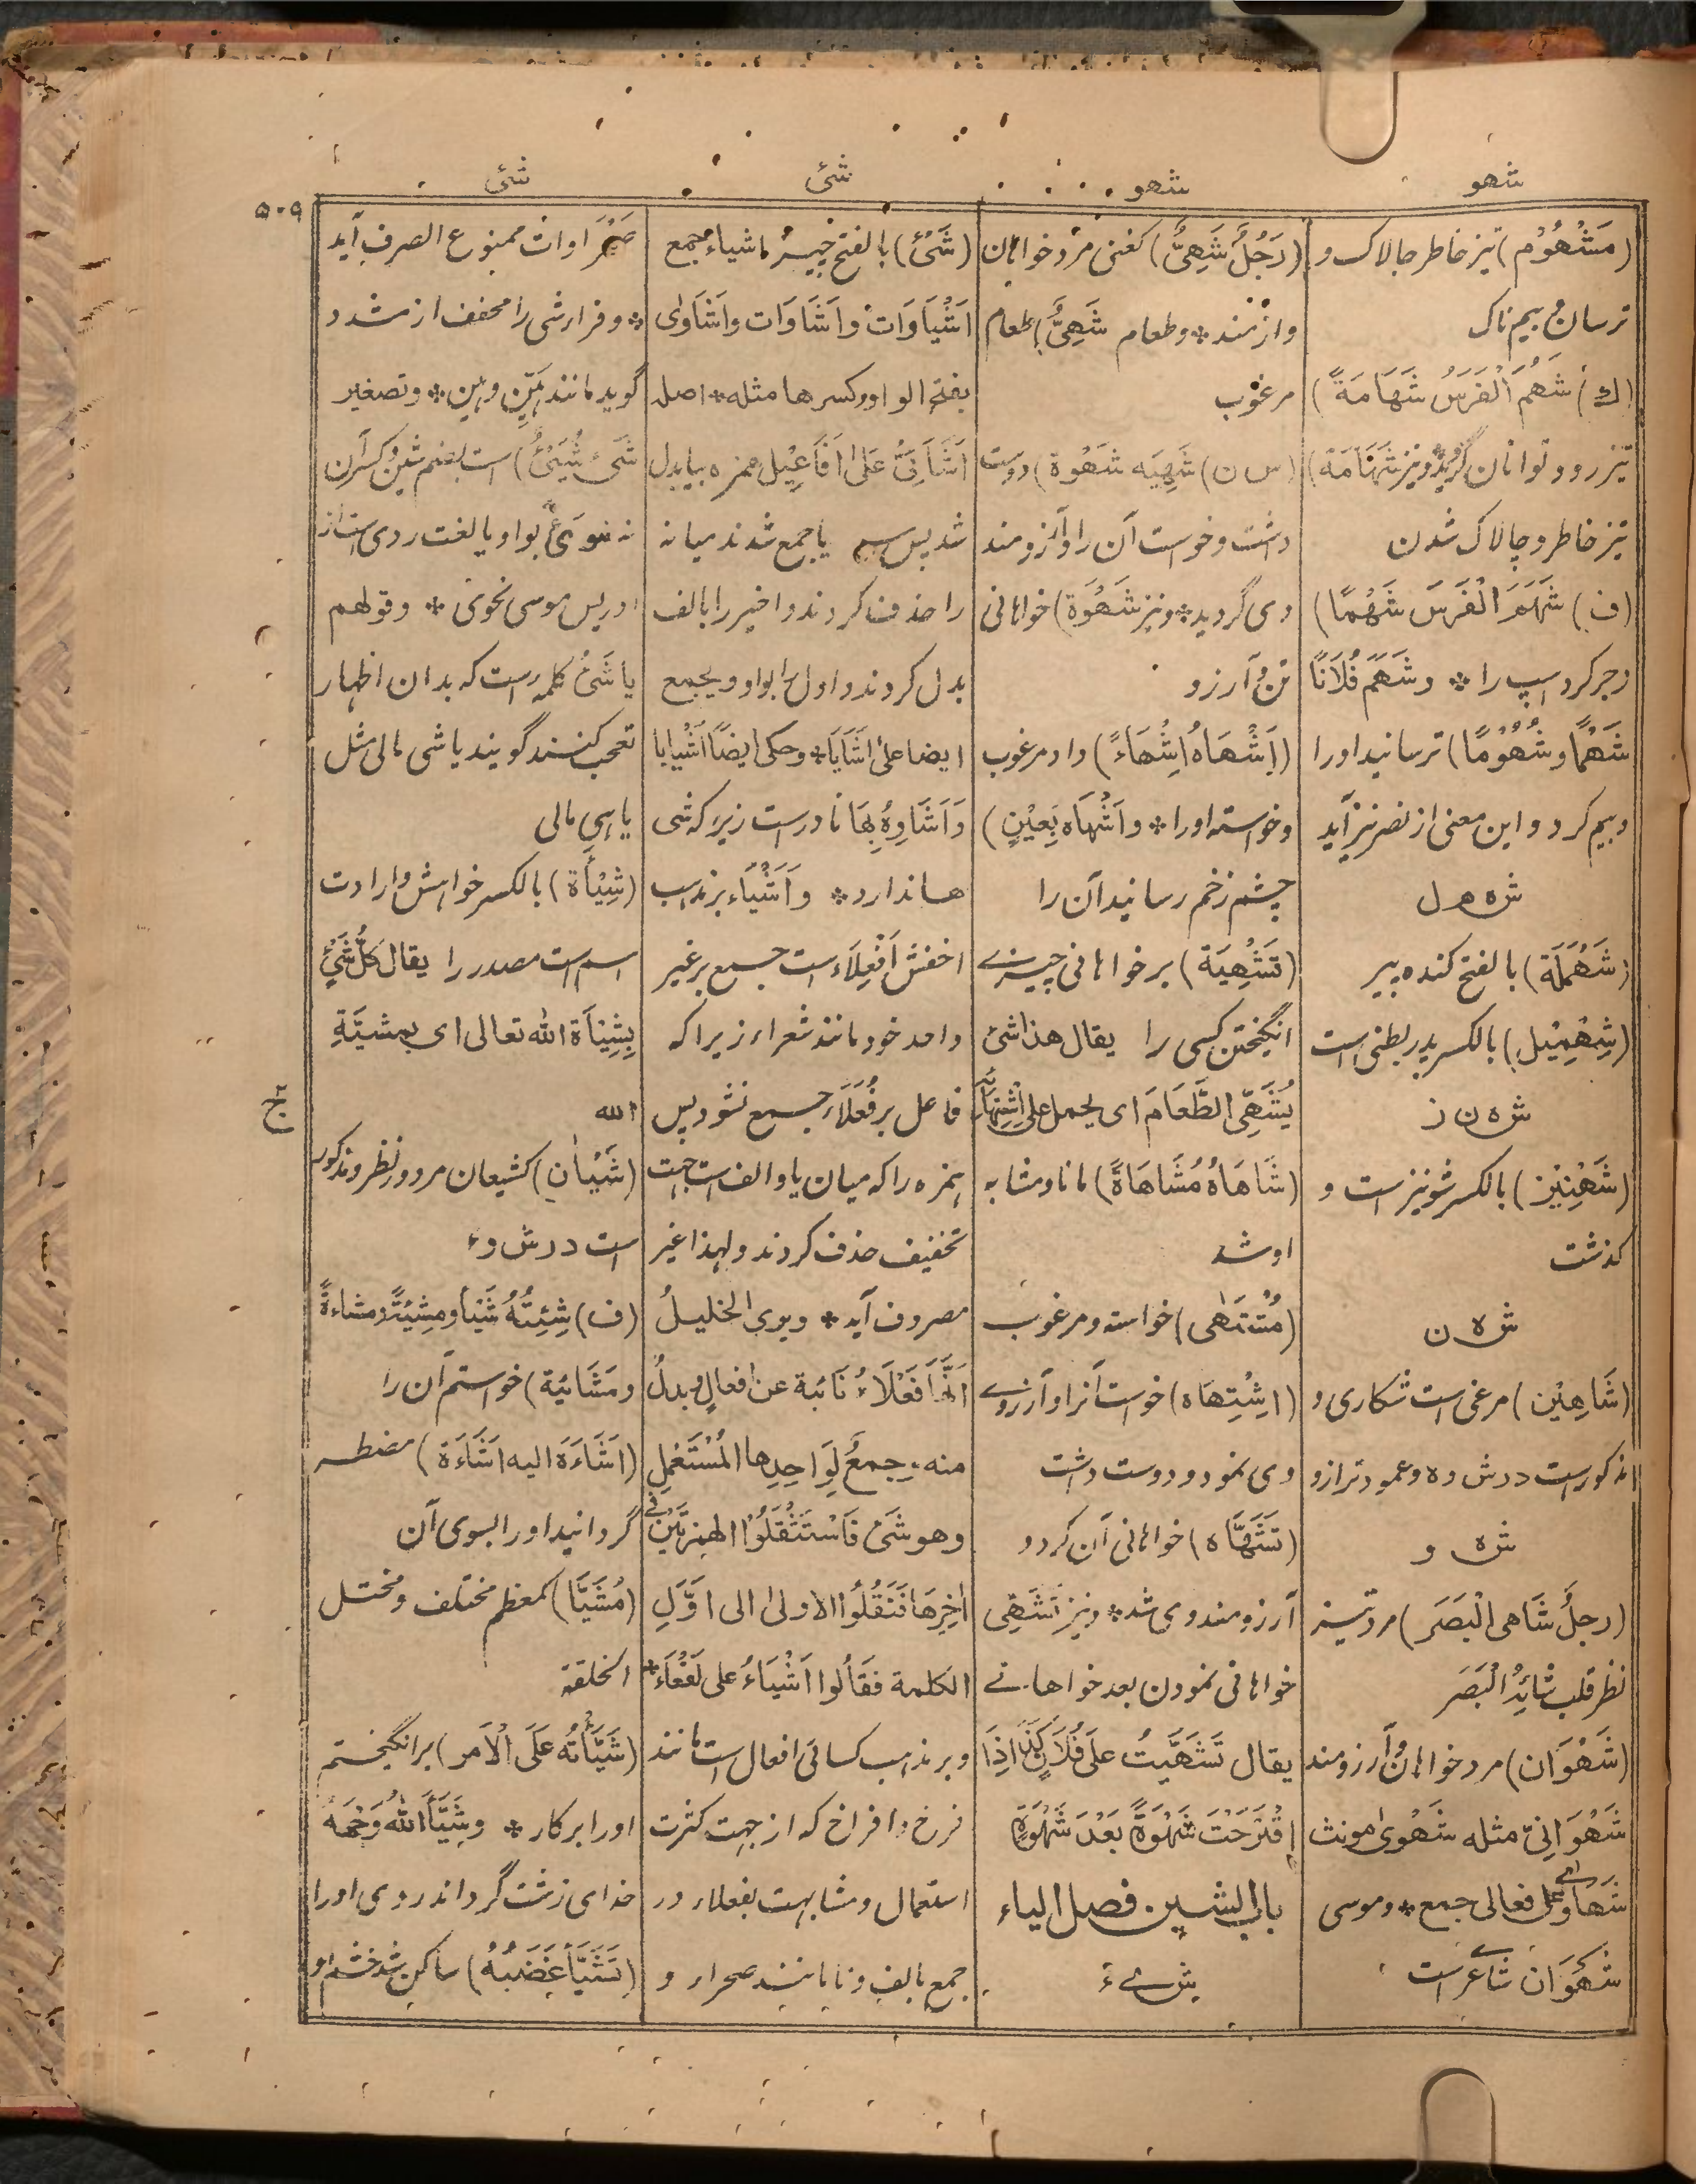 شهو
شهو
شئی
شئی
۵۰۹
(مَشْهُوْم) تیز خاطر چالاک و
ترسان و بیم ناک
(ك) شَهُمَ الْفَرَسُ شَهَامَةً)
تیز رو و توانا ن گردید و نیز شَهَامَة)
تیز خاطر و چالاک شدن
(ف) شَهَمَ الْفَرَسَ شَهْمًا)
زجر کرد اسپ را * و شَهَمَ فُلَانًا
شَهْمًا و شُهُوْمًا) ترسانید او را
و بیم کرد و این معنی از نصر نیز آید
ش ه م ل
(شَهْمَلَة) بالفتح کنده پیر
(شِهْمِیْل) بالکسر پدر بطنی است
ش ه ن ز
(شِهْنِیْز) بالکسر شونیز است و
گذشت
ش ه ن
(شَاهِیْن) مرغی است شکاری و
مذکور است در ش و ه و عمود ترازو
ش ه و
(رجلٌ شَاهی الْبَصَر) مرد تیز
نظر قلب شَائِهُ الْبَصَر
(شَهْوَان) مرد خواهان و آرزومند
شَهْوَانِیّ مثله شَهْویٰ مونث
شَهَاویٰ علی فعالی جمع * و موسی
شَهَوَان شاعر است
(رَجُلٌ شَهِیٌّ) کغنی مرد خواهان
و آزمند * و طعام شَهِیٌّ) طعام
مرغوب
(س ن) شَهِیَه شَهْوة) دوست
داشت و خواست آن را و آرزومند
وی گردید * و نیز شَهْوَة) خواهانی
تن و آرزو
(اَشْهَاهُ اِشْهَاءً) داد مرغوب
و خواسته او را * و اَشْهَاه بِعَیْنٍ)
چشم زخم رسانید آن را
(تَشْهِیَة) بر خواهانی چیزے
انگیختن کسی را یقال هذا شئ
یُشَهِّی الطَّعَامَ ای یحمل علی اِشْتِهَائِه
(شَاهَاهُ مُشَاهَاةً) مانا و مشابه
او شد
(مُشْتَهٰی) خواسته و مرغوب
(اِشْتِهَاه) خواست آنرا و آرزوے
وی نمود و دوست داشت
(تَشَهَّاه) خواهانی آن کرد و
آرزومند وی شد * و نیز تَشَهِّی
خواهانی نمودن بعد خواهانے
یقال تَشَهَّیتُ علی فُلَانٍ کَذَا اِذَا
اِقْتَرَحْتَ شَهْوَةً بَعْدَ شَهْوَةٍ
باب الشین فصل الیاء
ش ے ء
(شَیْئ) بالفتح چیز اشیاء جمع
اَشْیَاوَات و اَشَاوَات و اَشَاوٰی
بفتح الواو و کسرها مثله * اصل
اَشَائِیُّ عَلیٰ اَفَاعِیْل همزه بیا بدل
شد پس سه یا جمع شدند میانه
را حذف کردند و اخیر را بالف
بدل کردند و اول را بواو و یجمع
ایضا علی اَشَایَا * و حکی ایضًا اَشْیَایا
وَاَشَاوِهُ بِهَا نادر است زیرا که شی
ها ندارد * و اَشْیَاء بر مذهب
اخفش اَفْعِلَاء است جمع بر غیر
واحد خود مانند شعراء زیرا که
فاعل بر فُعَلَاء جمع نشود پس
همزه را که میان یا و الف است جهت
تخفیف حذف کردند و لهذا غیر
مصروف آید * و یری الخلیلُ
اَنَّهَا فَعْلَاءُ نَائبة عن افعالٍ و بدلُ
منه و جمعُ لِوَاحِدِها الْمُسْتَعْمِلِ
و هو شَئ فَاسْتَثْقَلُوْا الهمزتَیْن فی
اٰخِرِهَا فَنَقَلُوْا الاولی الی اَوَّلِ
الکلمة فَقَالُوا اَشْیَاءُ علی لَفْعَاءَ *
و بر مذهب کسائی افعال است مانند
فرخ و افراخ که از جهت کثرت
استعمال و مشابهت بفعلاء در
جمع بالف و تا مانند صحراء و
صَحْرَاوات ممنوع الصرف آید
* و فراء شی را مخفف از مشدد
گوید مانند هَیِّن و هین * و تصغیر
شَیٔ شُیَیْئٌ) است بضم شین و کسر آن
نه شوَیْ بواو یا لغت ردی است از
ادریس موسی نحوی * و قولهم
یا شَئَ کلمه است که بدان اظهار
تعجب کنند گویند یا شی مالی مثل
یا هیِ مالی
(شِیْأَة) بالکسر خواهش و ارادت
اسم است مصدر را یقال کُلُّ شَیْئٍ
بِشِیْأَةِ اللّٰه تعالی ای بِمَشِیَّةِ
اللّٰه
(شَیْاٰن) کشیعان مرد دور نظر و مذکور
است در ش و ء
(ف) شِئْتُهُ شَیْئًا و مَشِیْئَةً و مَشاءةً
و مَشَائِیَة) خواستم آن را
(اَشَاءَهُ الیه اَشَاءَة) مضطر
گردانید او را بسوی آن
(مُشَیَّأ) کمعظم مختلف و مختل
الخلقة
(شَیَّأْتُه عَلَی الْاَمر) بر انگیختم
او را بر کار * و شَیَّأَ اللّٰهُ وَجْهَهُ
خدای زشت گرداند روی او را
(تَشَیَّأَ غَضَبُهُ) ساکن شد خشم او